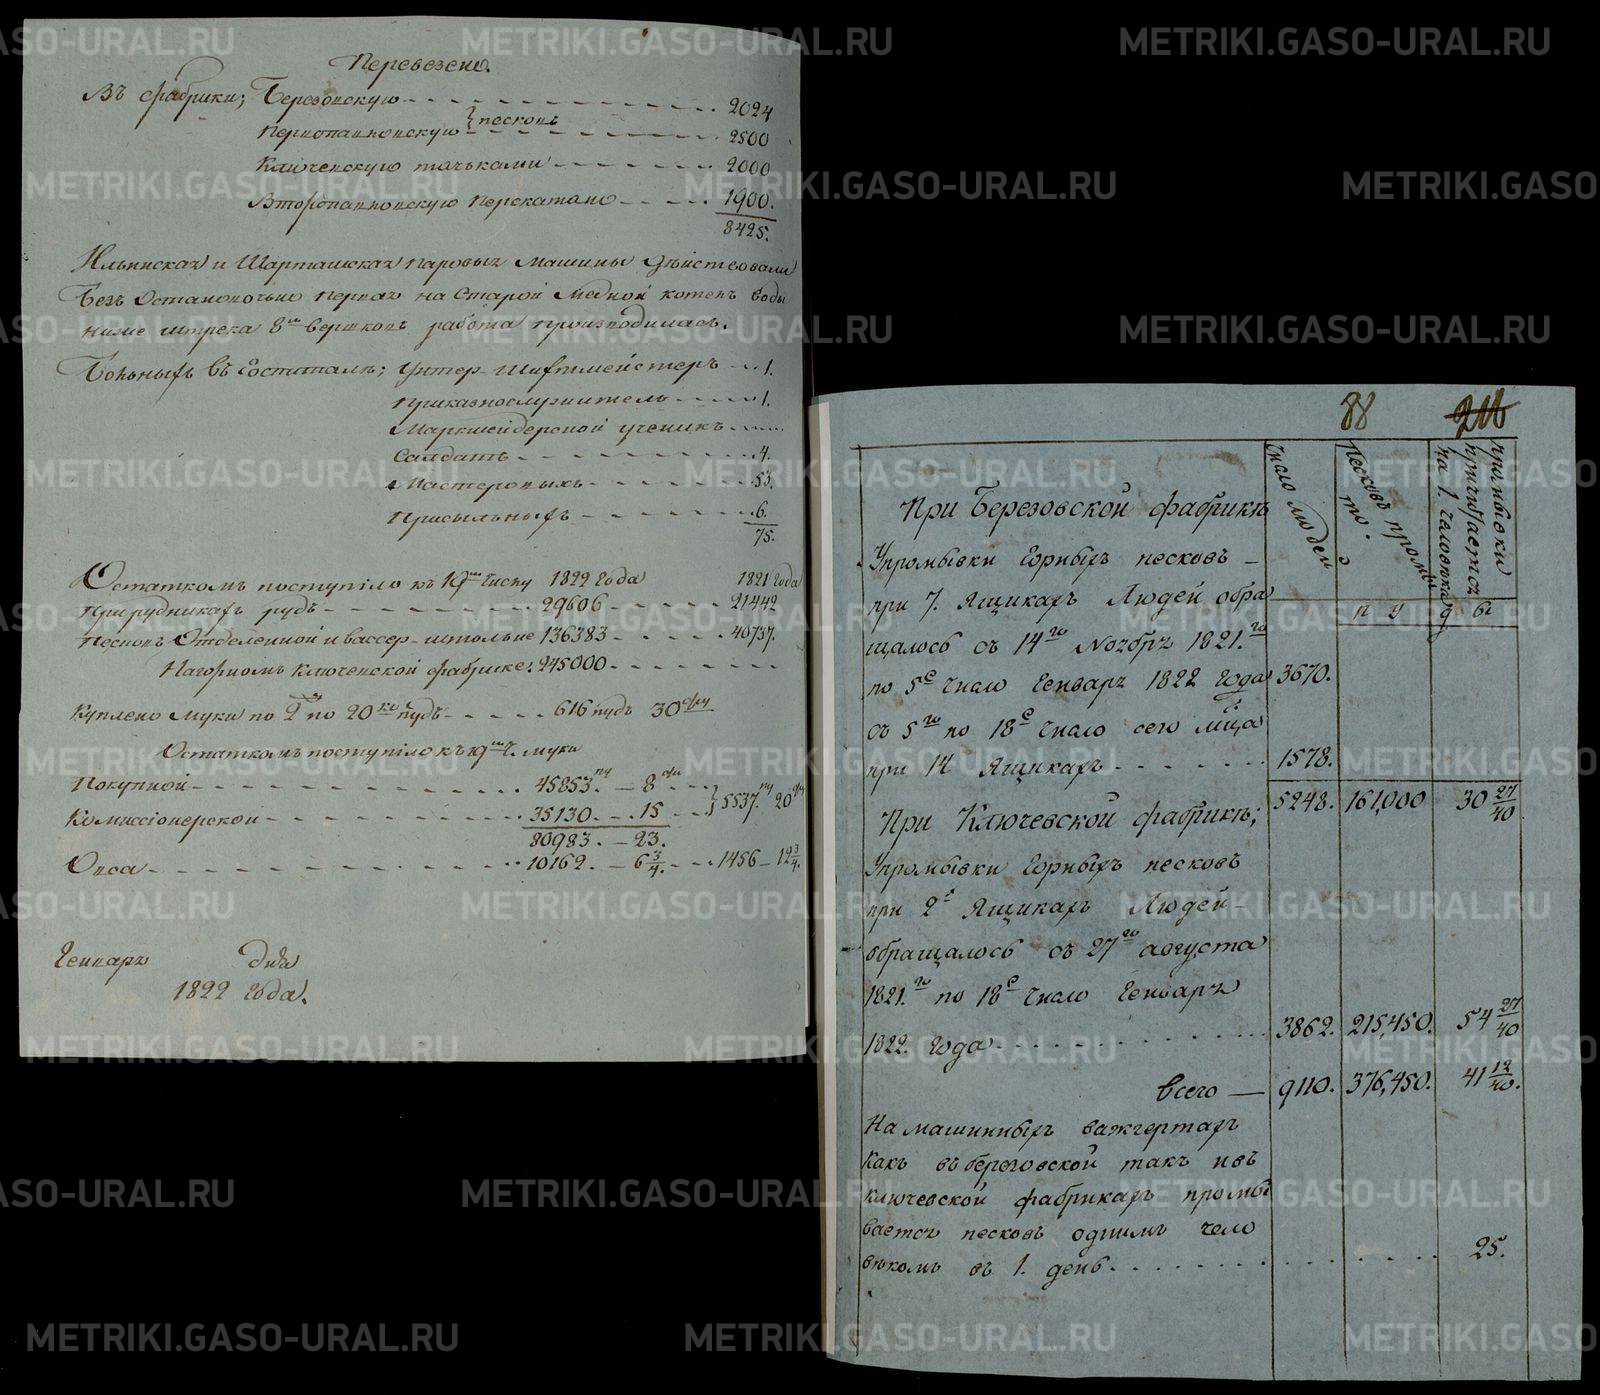 Перевезено.
Въ фабрики; Березовскую - - - - 2024
песковъ
Первопавловскую - - - - 2500
Ключевскую тачьками - - - - 2000
Второпавловскую перекатано - - - - 1900.
8425.
Ильинская и Шарташская паровыя машины дѣйствовали
безъ остановочьно первая на старой медной котелъ воды
ниже штрека 8ми вершковъ работа производилась.
Больныхъ въ Гоститалѣ; Унтер-шихтмейстеръ - - 1.
Приказнослужитель - - - - 1.
Маркшейдерской ученикъ - - - -
Салдатъ - - - - 4.
Мастеровыхъ - - - - 53.
Присыльныхъ - - - - 6.
75.
Остаткомъ поступило къ 19му числу 1822 года 1821 года
При рудникахъ рудъ - - - - 29606 - - - - 21442
Песковъ Отделенной и вассер-штольне 136383 - - - - 40737.
Нагорномъ Ключевской фабрике. 245000 - - - -
Куплено муки по 2 по 20 ко пудъ - - - - 616 пудъ 30 фун
Остаткомъ поступило къ 19му ч. муки
Покупной - - - - 45853. пу - 8 фу - - - -
5537. пу 20 фу
Комиссіонерской - - - - 35130. - 15 - -
80983. - 23.
Овса - - - - 10162. - 6 3/4. - - - 1456 - 12 3/4.
Генварь дня
1822 года.
88 216
число людей
песковъ промыто.
промывки причитается на 1. человека
п у ды
При Березовской фабрикѣ
Упромывки горныхъ песковъ -
при 7. Ящикахъ Людей обра
щалось съ 14го Ноября 1821. го
по 5е число Генваря 1822 года 3670.
съ 5го по 18е число сего мца
при 14 Ящикахъ - - - - 1578.
5248. 161,000 30 27/40
При Ключевской фабрикѣ;
Упромывки горныхъ песковъ
при 2х Ящикахъ Людей -
обращалось съ 27го августа
1821. го по 18е число Генваря
1822 года - - - - 3862. 215,450. 54 27/40
всего — 9110. 376,450. 41 12/40.
На машинныхъ вашгертахъ
какъ въ березовской такъ ивъ
ключевской фабрикахъ промы
вается песковъ однимъ чело
вѣкомъ въ 1. день - - - - 25.
METRIKI.GASO-URAL.RU